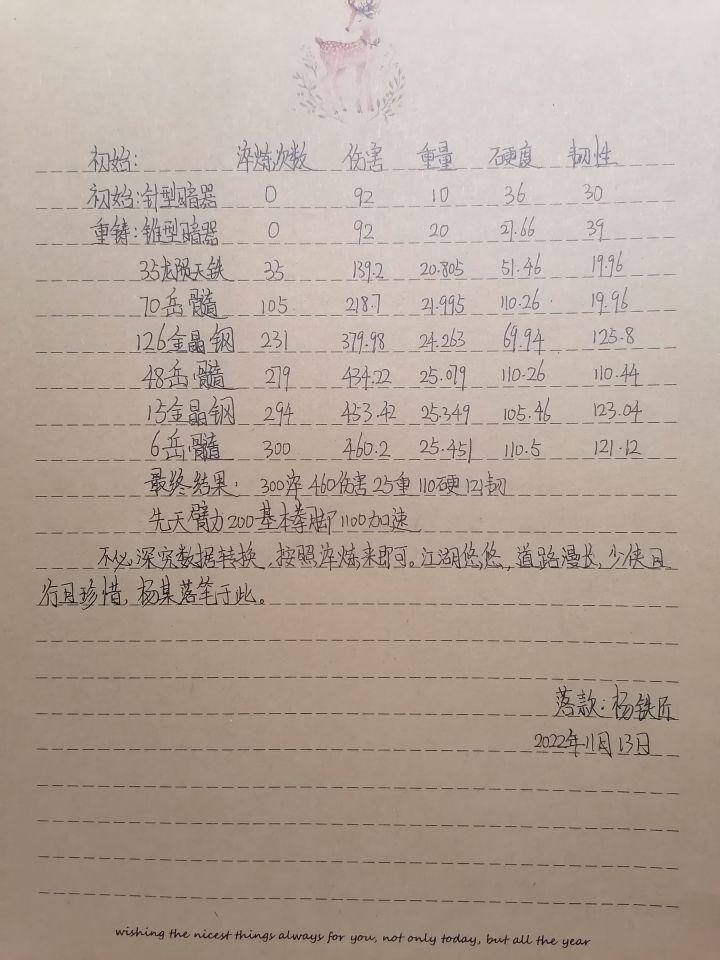 初始: 淬炼次数 伤害 重量 硬度 韧性
初始:针型暗器 0 92 10 36 30
重铸:锥型暗器 0 92 20 27.66 39
35龙陨天铁 35 139.2 20.805 51.46 19.96
70岳髓 105 218.7 21.995 110.26 19.96
126金晶钢 231 379.98 24.263 69.94 125.8
48岳髓 279 434.22 25.079 110.26 110.44
15金晶钢 294 453.42 25.349 105.46 123.04
6岳髓 300 460.2 25.451 110.5 121.12
最终结果: 300淬 460伤害 25重 110硬 121韧
先天臂力200基本拳脚1100加速
不必深究数据转换,按照淬炼来即可。江湖悠悠,道路漫长,少侠且
行且珍惜,杨某落笔于此。
落款:杨铁匠
2022年11月13日
wishing the nicest things always for you, not only today, but all the year